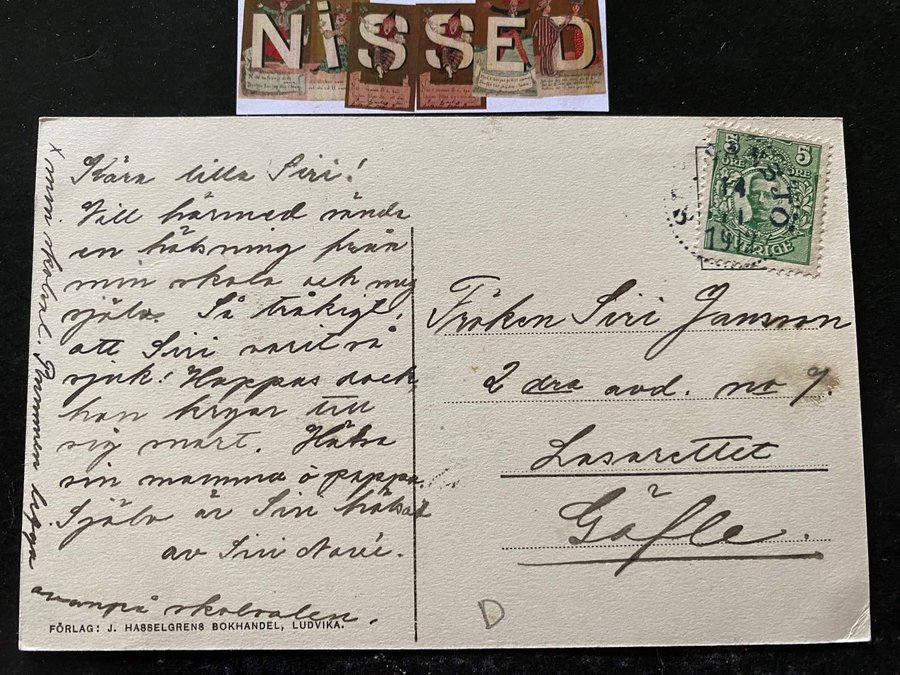 NiSSED
Kära lilla Siri!
Vill härmed sända
en hälsning från
min skola och mig
själv. Så tråkigt,
att Siri varit så
sjuk! Hoppas dock
hon kryar till
sig snart. Hälsa
sin mamma o pappa.
Själv är Siri hälsad
av Siri Norén.
x min skolsal. Rummen ligga
ovanpå skolsalen.
FÖRLAG: J. HASSELGRENS BOKHANDEL, LUDVIKA.
5 5
ÖRE ÖRE
SVERIGE
14
1
191
Fröken Siri Jansson
2 dra avd. no 7.
Lasarettet
Gäfle.
D